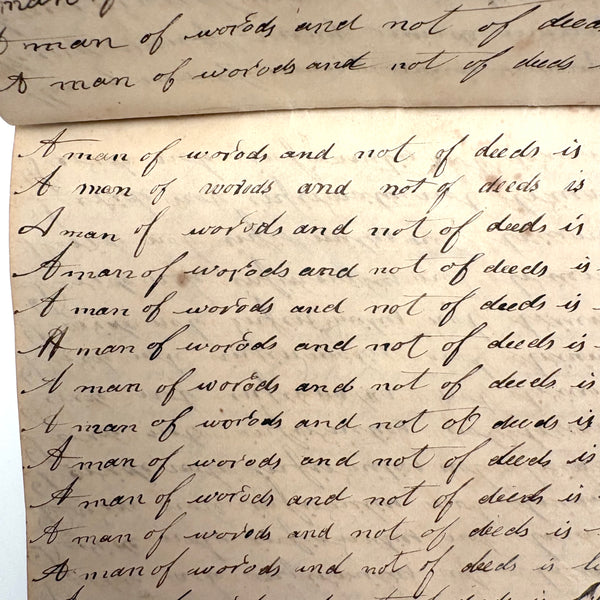 man of
A man of words and not of deeds
A man of words and not of deeds
A man of words and not of deeds is
A man of words and not of deeds is
A man of words and not of deeds is
A man of words and not of deeds is
A man of words and not of deeds is
A man of words and not of deeds is
A man of words and not of deeds is
A man of words and not of deeds is
A man of words and not of deeds is
A man of words and not of deeds is
A man of words and not of deeds is
A man of words and not of deeds is